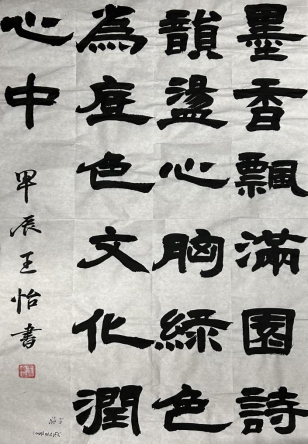 墨香飄滿園詩
韻盪心胸綠色
為底色文化潤
心中
甲辰王怡書